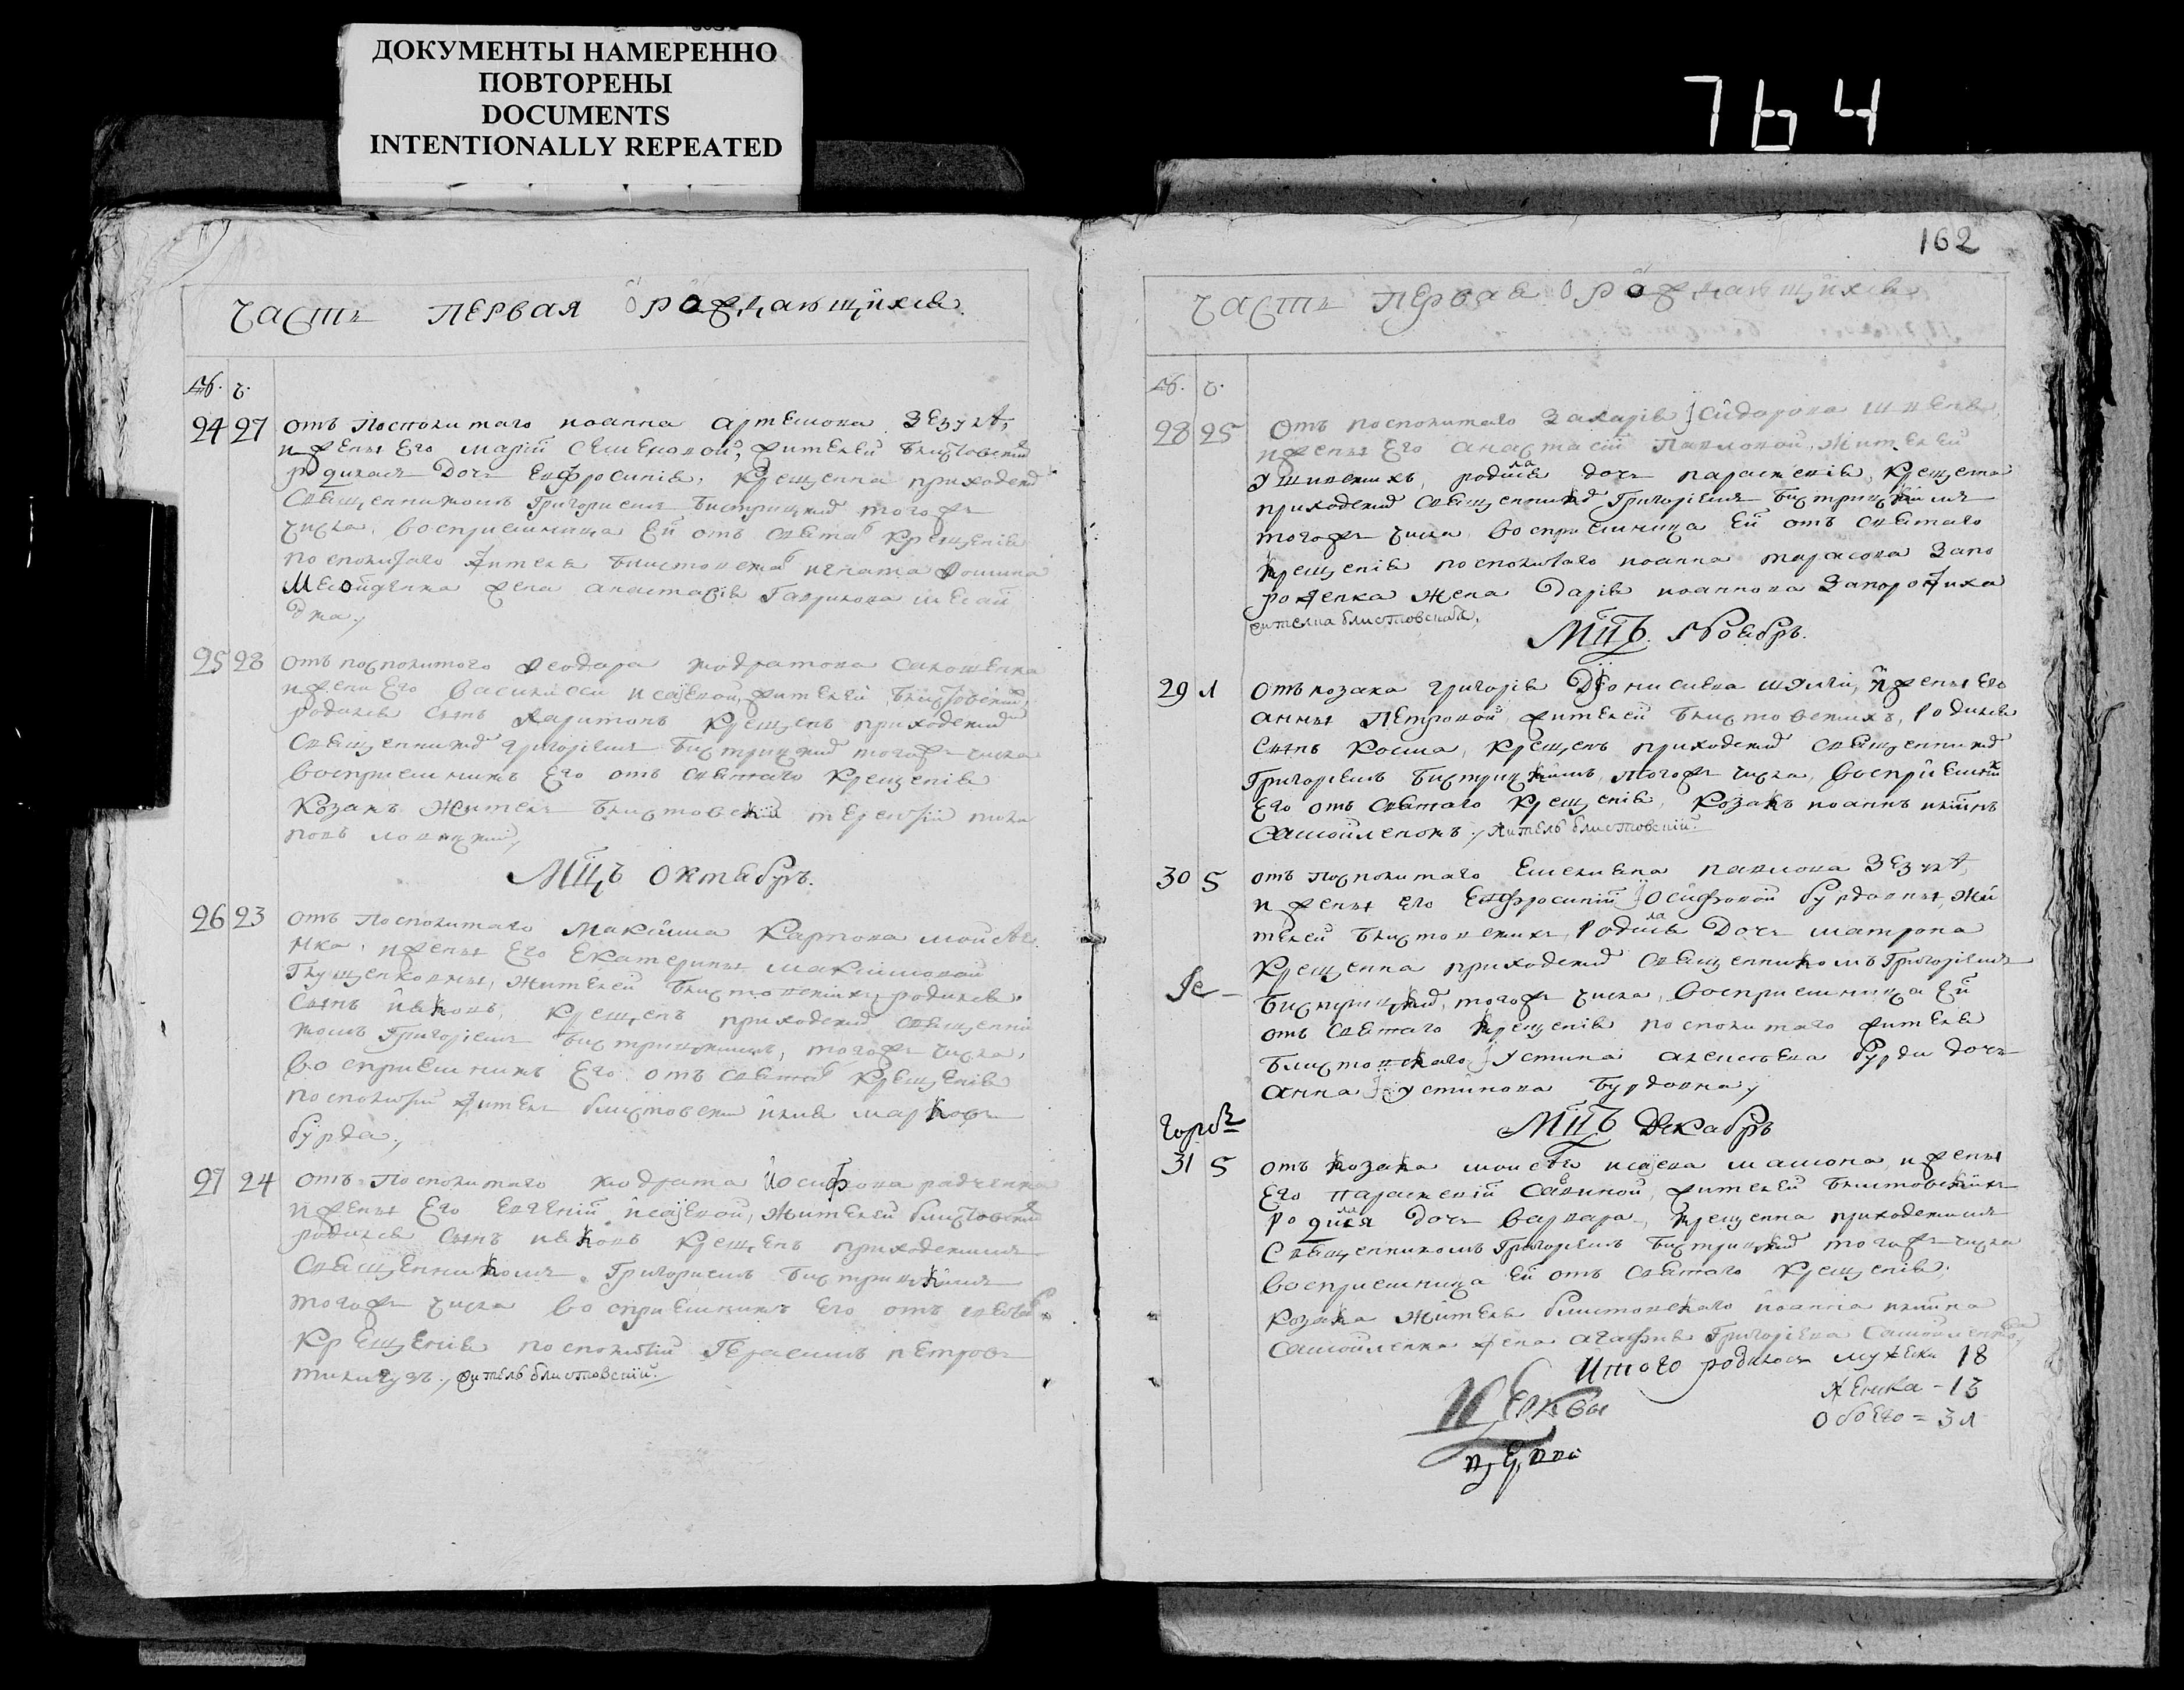 ДОКУМЕНТЫ НАМЕРЕННО
ПОВТОРЕНЫ
DOCUMENTS
INTENTIONALLY REPEATED
764
Часть первая о рождающихся.
№. ч.
24 27 Отъ посполитаго иоанна артемова
и жены его марiи семеновой, жителей блистовских
родилася дочь евфросинiя, крещенна приходским
священникомъ григориемъ бистрицким тогожъ
числа, восприемница ей отъ святаго крещенiя
посполитаго жителя блистовскаго игната фомина
жена анастасiя гаврилова
25 28 Отъ посполитого феодора кодратова
и жени его василиси исаевой, жителей блистовских,
родился сынъ харитонъ крещенъ приходским
священником григорiемъ бистрицким тогожъ числа
восприемникъ его отъ святаго крещенiя
козакъ житель блистовскiй терентiй
Мцъ октябръ.
26 23 отъ посполитаго максима карпова моисѣе
нка, и жены его екатерины максимовой
глущенковны, жителей блистовскихъ, родился
сынъ иаковъ, крещенъ приходским священни
комъ григорiемъ бистрицкимъ, тогожъ числа,
восприемникъ его отъ святаго крещенiя
посполитый житель блистовский илия марковъ
бурда,
27 24 отъ посполитаго кодрата иосифова радченка
и жены его евгенiй исаевой, жителей блистовских
родился сынъ иаковъ крещенъ приходскимъ
священникомъ григориемъ бистрицкiмъ
тогожъ числа восприемникъ его отъ святаго
крещенiя посполитiй герасимъ петровъ
житель блистовскiй.
162
Часть первая о рождающихся
№. ч.
28 25 Отъ посполитаго захарiя сидорова
и жены его анастасiй павловой, жителей
родилася дочь параскевiя, крещена
приходским священником григорiемъ бистрицкiмъ
тогожъ числа, восприемница ей отъ святаго
крещенiя посполитаго иоанна тарасова запо
роженка жена дарiя иоаннова запорожиха
жителка блистовская,
Мцъ. Ноябръ.
29 1 отъ козака григорiя дiонисиева и жены его
анны петровой жителей блистовскихъ, родился
сынъ косма, крещенъ приходским священником
григорiемъ бистрицкiмъ, тогожъ числа, восприемник
его отъ святаго крещенiя, козакъ иоаннъ
самойленокъ, житель блистовскiй.
30 5 отъ посполитаго емелиана павлова
и жены его евфросинiй iосифовой бурдовны, жи
телей блистовскихъ, родилася дочь матрона
крещенна приходским священникомъ григорiемъ
бистрицким, тогожъ числа, восприемница ей
отъ святаго крещенiя посполитаго жителя
блистовскаго устина алексѣева бурди дочь
анна устинова бурдовна,
Мцъ Декабръ
31 5 отъ козака моисѣя исаева мамона, и жены
его параскевiй савиной, жителей блистовскiхъ
родилася дочь варвара, крещенна приходскимъ
священникомъ григорiемъ бистрицким тогожъ числа
восприемница ей отъ святаго крещенiя,
козака жителя блистовскаго иоанна
самойленка жена агафия григорiева
Итого родилось мужеска 18
женска - 13
обоего = 31
Церкви